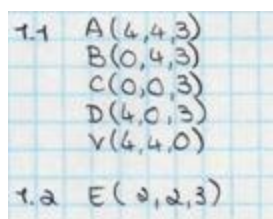 1.1 A(4,4,3)
B(0,4,3)
C(0,0,3)
D(4,0,3)
V(4,4,0)
1.2 E(2,2,3)